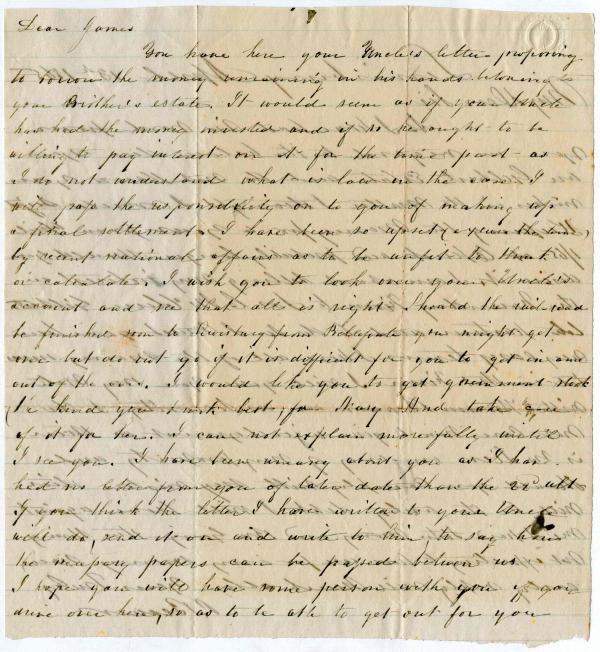 Dear James
You have here your Uncle's letter proposing
to borrow the money remaining in his hands belonging
your Brother's estate. It would seem as if your Uncle
has had the money invested and if so he ought to be
willing to pay interest on it for the time past as
I do not understand what is law in the case I
will pass the responsibility on to you of making up
a final settlement. I have been so upset (excuse the term)
by recent national affairs as to be unfit to think
or calculate. I wish you to look over your Uncle's
account and see that all is right Should the rail-road
be finished soon to from Bellefonte you might get
over but do not go if it is difficult for you to get in and
out of the cars. I would like you to get government stock
(the kind you think best) for Mary And take care
of it for her. I can not explain more fully until
I see you. I have been uneasy about you as I have
had no letter from you of later date than the 22d ult
If you think the letter I have written to your Uncle
will do, send it on and write to him to say how
the necessary papers can be passed between us
I hope you will have some person with you if you
drive over here, so as to be able to get out for you